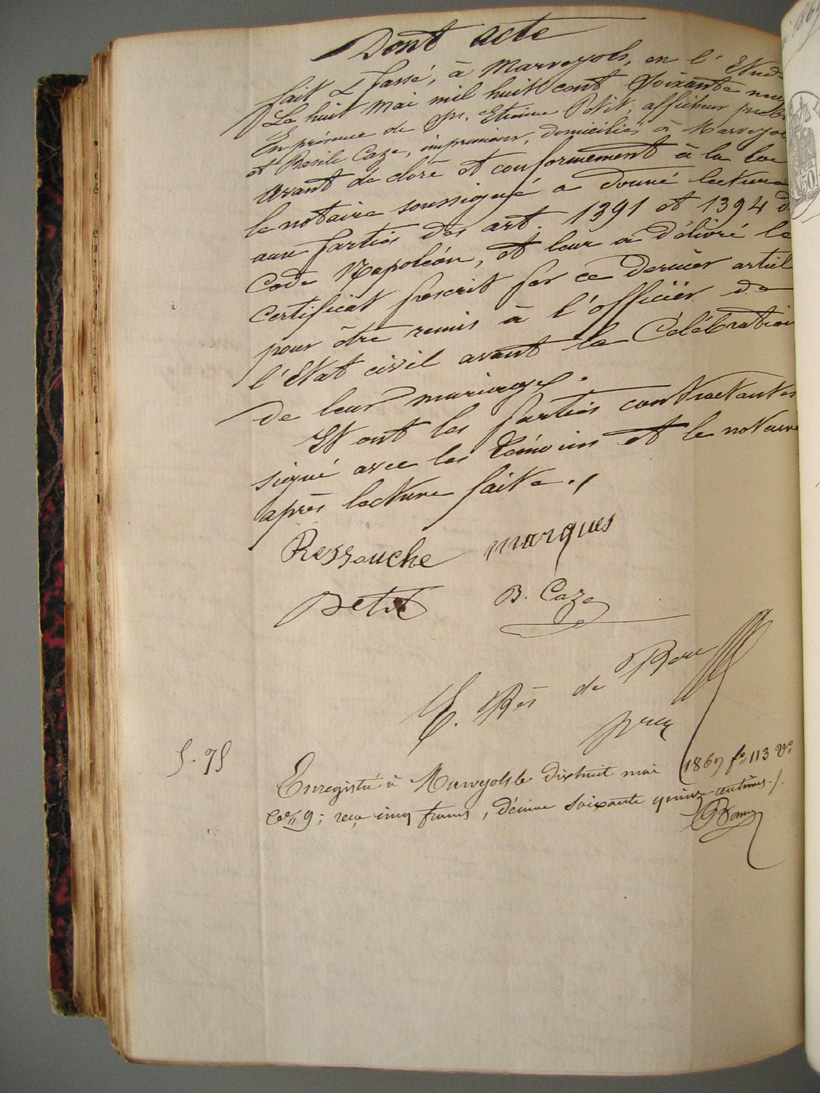 Dont acte
fait & passé, à Marvejols, en l'Etude
Le huit mai mil huit cent soixante neuf
En présence de Mrs. Etienne Petit, afficheur public
et Basile Caze, imprimeur, domiciliés à Marvejols
avant de clore et conformement à la loi
le notaire soussigné a donné lecture
aux parties des art. 1391 et 1394 d
Code Napoléon, et leur a délivré le
certificat prescrit par ce dernier articl
pour être remis à l'officier de
l'Etat civil avant la Célébration
de leur mariage.
Et ont les parties contractantes
signé avec les témoins et le notaire
après lecture faite./
Ressouche marques
petit B. Caze
de
5.75
Enregistré à Marvejols le dixhuit mai 1869 fo 113 Vo
Ce 9; reçu cinq francs, décime soixante quinze centimes./.